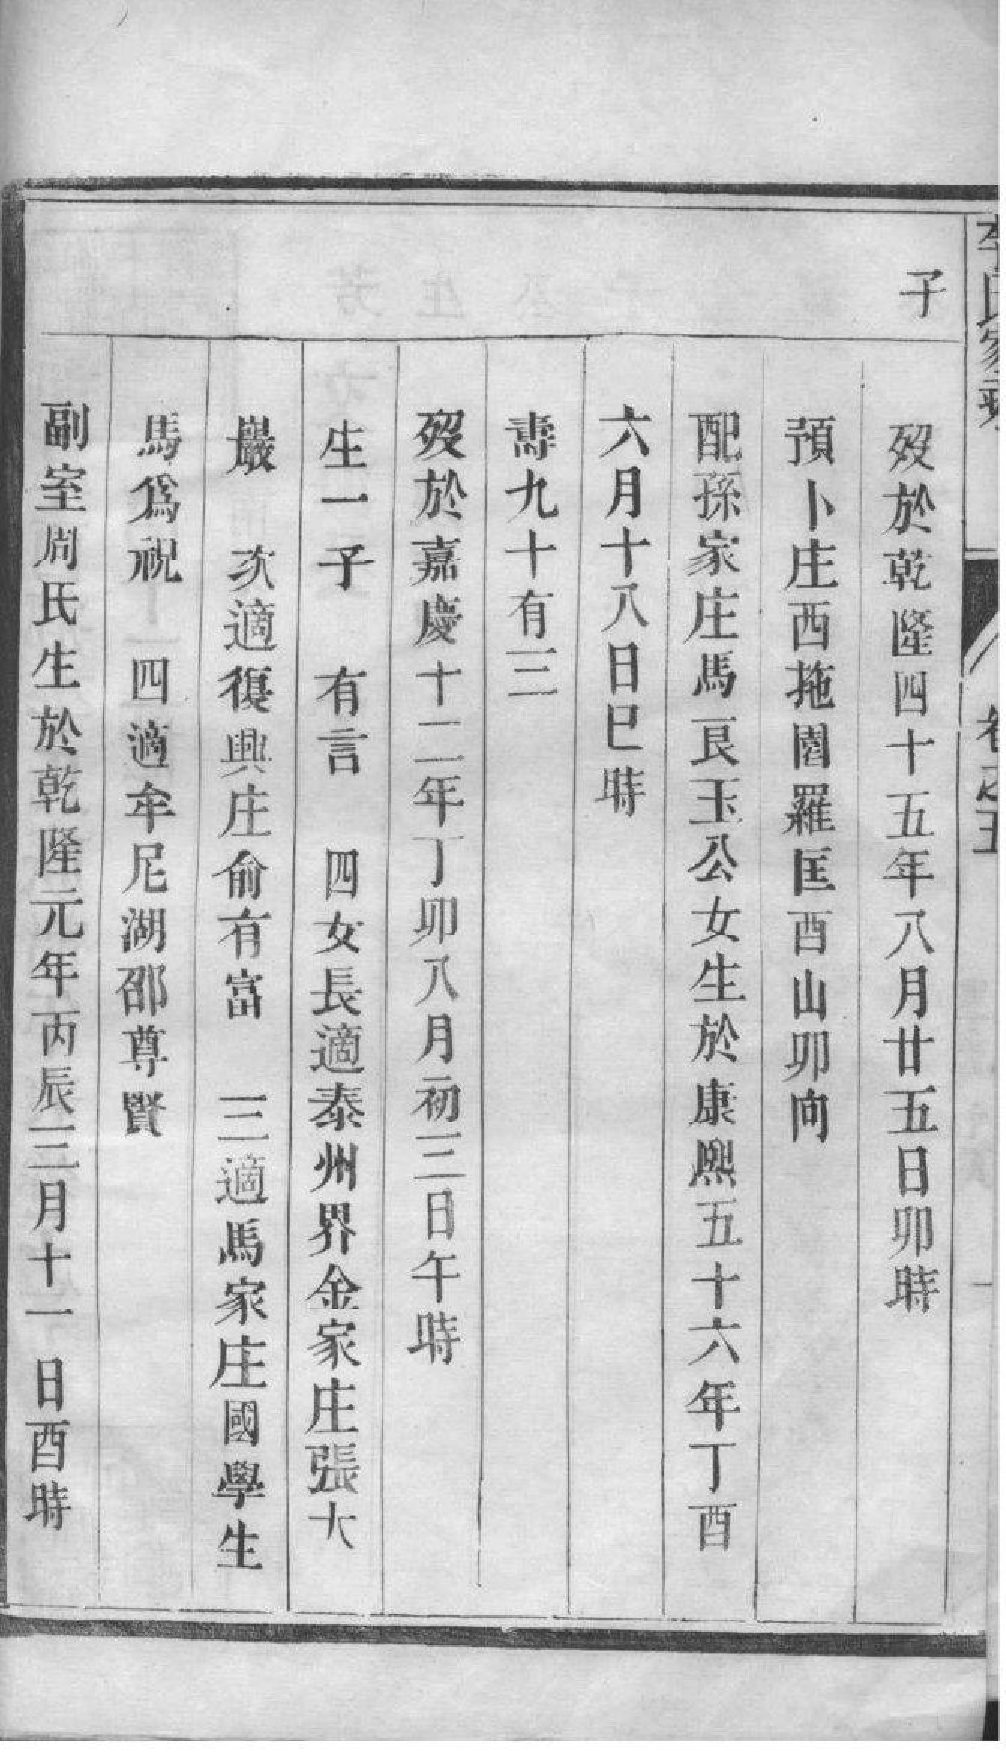 李氏家乘
卷之五
子
歿於乾隆四十五年八月廿五日卯時
預卜庄西拖園羅匡酉山卯向
配孫家庄馬良玉公女生於康熙五十六年丁酉
六月十八日巳時
壽九十有三
歿於嘉慶十二年丁卯八月初三日午時
生一子 有言 四女長適泰州界金家庄張大
巖 次適復興庄俞有富 三適馬家庄國學生
馬為祝 四適牟尼湖邵尊賢
副室周氏生於乾隆元年丙辰三月十一日酉時